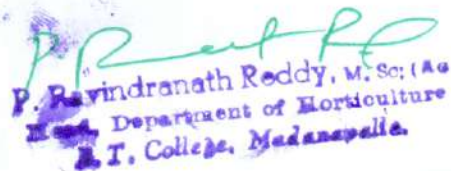 P. Ravindranath Reddy, M. Sc; (Ag
Head, Department of Horticulture
B. T. College, Madanapalle.